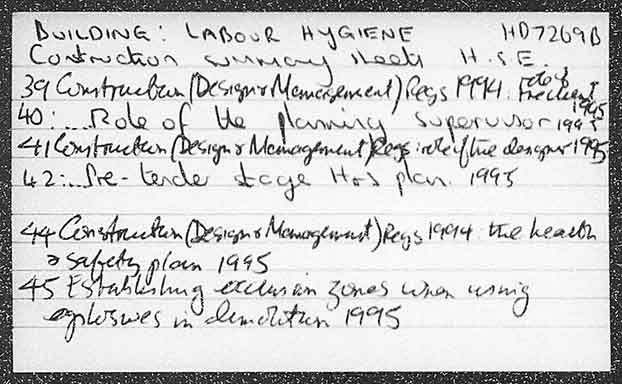 BUILDING: LABOUR HYGIENE HD7269B
Construction summary sheets H.S.E.
39 Construction (Design & Management) Regs 1994: role of the client 1995
40: .... Role of the planning supervisor 1995
41 Construction (Design & Management) Regs: role of the designer 1995
42: ... Pre-tender stage H&S plan. 1995
44 Construction (Design & Management) Regs 1994 the health
& safety plan 1995
45 Establishing exclusion zones when using
explosives in demolition 1995